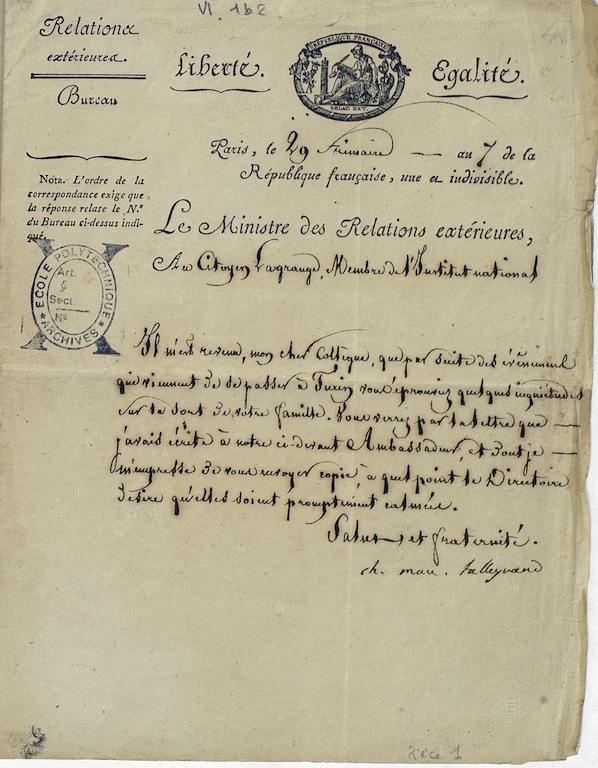 VI. 1b2
Relations
extérieures.
Bureau
Liberté.
RÉPUBLIQUE FRANÇAISE
RELAT. EXT.
Egalité.
Paris, le 29 Frimaire — an 7 de la
République française, une et indivisible.
Nota. L'ordre de la
correspondance exige que
la réponse relate le N.º
du Bureau ci-dessus indi-
qué.
Le Ministre des Relations extérieures,
Au Citoyen Lagrange, Membre de l'Institut national
ECOLE POLYTECHNIQUE
Art.
Sect.
Nº
ARCHIVES
X
Il m'est revenu, mon cher Collègue, que par suite des événemens
qui viennent de se passer à Turin vous éprouviez quelques inquiétudes
sur le sort de votre famille. Vous verrez par la lettre que —
j'avais écrite à notre ci-devant Ambassadeur, et dont je —
m'empresse de vous envoyer copie, à quel point le Directoire
désire qu'elles soient promptement calmées.
Salut et fraternité.
ch. mau. talleyrand
Pièce 1